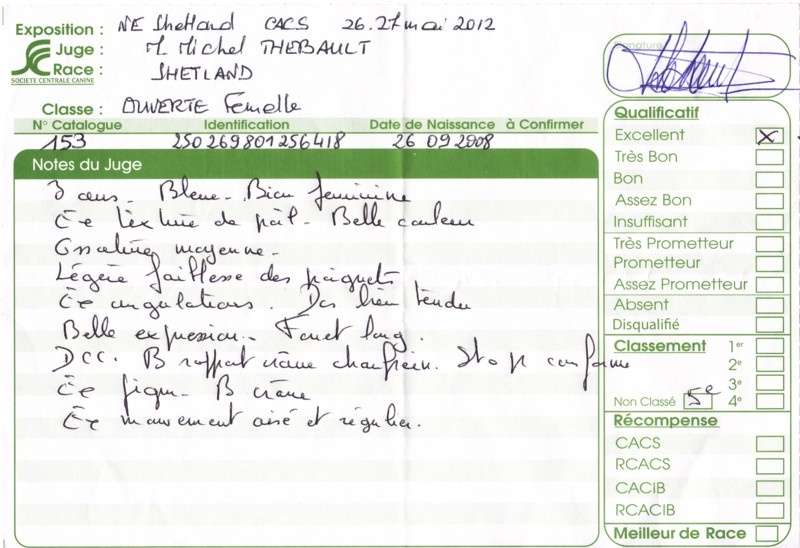 Exposition : NE Shetland CACS 26.27 mai 2012
Juge : M. Michel THEBAULT
Race : SHETLAND
SOCIETE CENTRALE CANINE
Classe : OUVERTE Femelle
N° Catalogue Identification Date de Naissance à Confirmer
153 250269801256418 26 09 2008
Notes du Juge
3 ans. Bleue. Bien féminine
Exe texture de poil - Belle couleur
Ossature moyenne.
Légère faiblesse des poignets
Exe angulations. Dos bien tendu
Belle expression. Fouet long
DCC. B rapport crâne chanfrein. Stop conforme
Exe pigm. B crâne
Ex mouvement aisé et régulier.
Signature
Qualificatif
Excellent X
Très Bon
Bon
Assez Bon
Insuffisant
Très Prometteur
Prometteur
Assez Prometteur
Absent
Disqualifié
Classement 1er
2e
3e
Non Classé 5e 4e
Récompense
CACS
RCACS
CACIB
RCACIB
Meilleur de Race